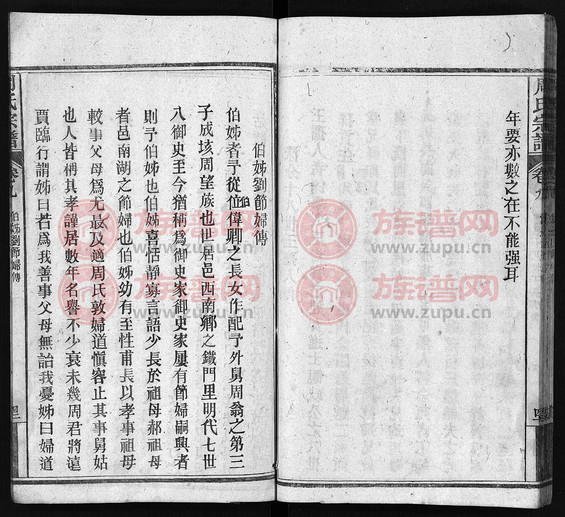 周氏宗譜
卷九
年要亦數之在不能强耳
伯姊劉節婦傳
伯姊者予從伯位偉卿之長女作配予外舅周翁之第三
子成垓周望族也世居邑西南鄉之鐵門里明代七世
八御史至今猶稱爲御史家御史家屢有節婦嗣興者
則予伯姊也伯姊喜恬靜寡言語少長於祖母郝祖母
者邑南湖之節婦也伯姊幼有至性甫長以孝事祖母
較事父母爲尤最及適周氏敦婦道慎容止其事舅姑
也人皆稱其孝謹居數年名譽不少衰未幾周君將遠
賈臨行謂姊曰若爲我善事父母無詒我憂姊曰婦道
周氏宗譜
卷九
伯姊劉節婦傳
族谱网
www.zupu.cn
族谱网
www.zupu.cn